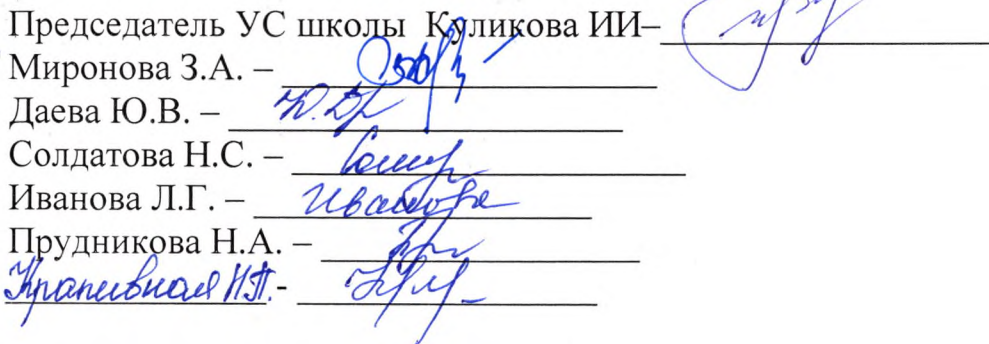 Председатель УС школы Куликова ИИ–
Миронова З.А. –
Даева Ю.В. –
Солдатова Н.С. –
Иванова Л.Г. – Иванова
Прудникова Н.А. –
Крапивная Н.П. -